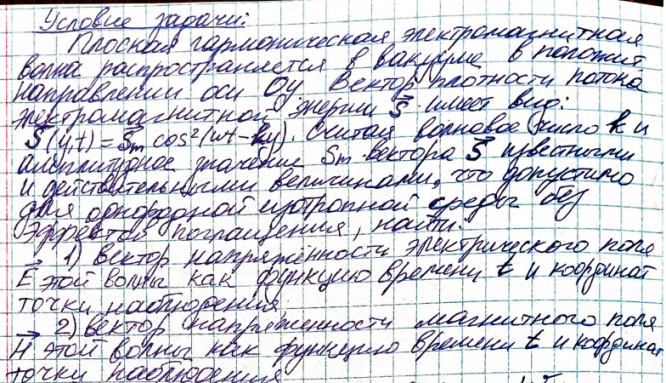 Условие задачи:
Плоская гармоническая электромагнитная
волна распространяется в вакууме в положит
направлении оси Oy. Вектор плотности потока
электромагнитной энергии S⃗ имеет вид:
S⃗(y,t) = S⃗m cos²(ωt - ky). Считая волновое число k и
амплитудное значение Sm вектора S⃗ известными
и действительными величинами, что допустимо
для однородной изотропной среды без
эффектов поглощения, найти:
1) вектор напряжённости электрического поля
E⃗ этой волны как функцию времени t и координат
точки наблюдения
2) вектор напряженности магнитного поля
H⃗ этой волны как функцию времени t и координат
точки наблюдения